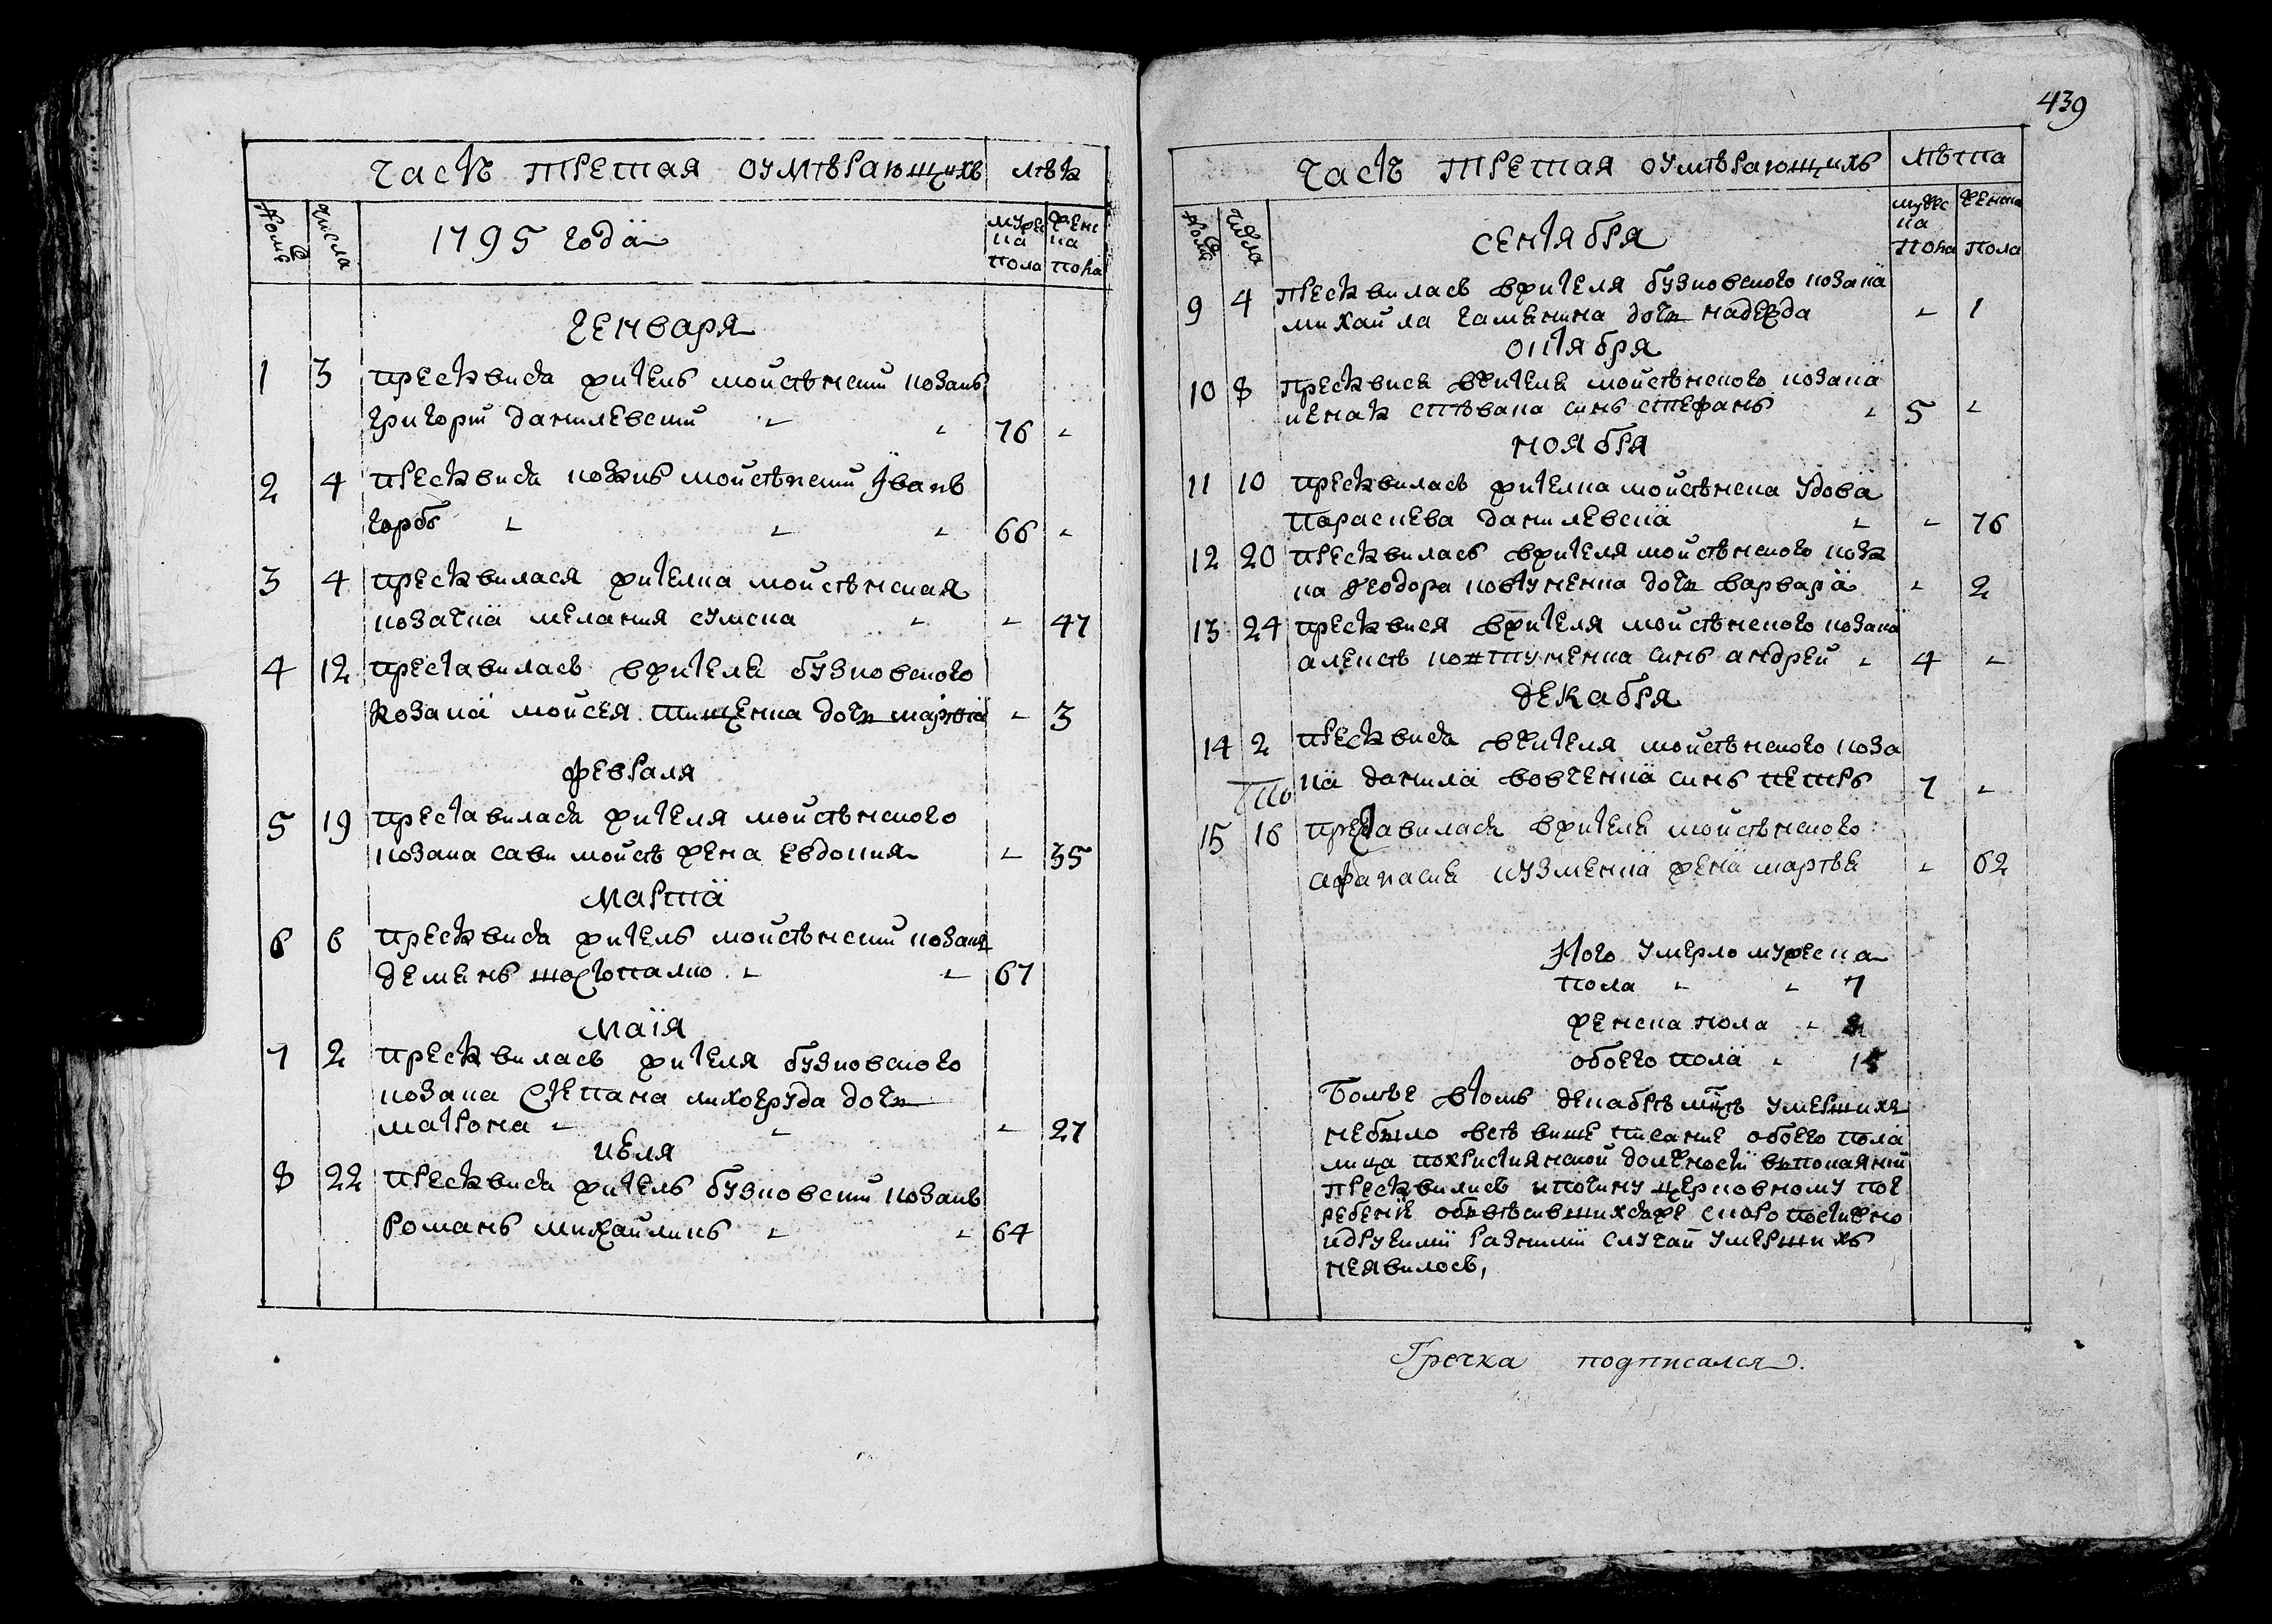 часть третая оумѣрающихъ лѣта
номеръ числа 1795 года мужеска пола женска пола
генваря
1 3 преставися житель мойсѣнскій козакъ
григорій данилевскій " " 76 "
2 4 преставися козакъ мойсѣнскій іванъ
горбъ " " " 66 "
3 4 преставилася жителка мойсѣнская
козачка меланія сумска " " 47
4 12 преставилась в жителя бузковского
козака мойсея тищенка дочь марѳа " 3
февраля
5 19 преставилася жителя мойсѣнского
козака сави мойсѣ жена евдокия " 35
марта
6 6 преставися житель мойсѣнскій козакъ
деменъ " " 67
маїя
7 2 преставилась жителя бузковского
козака степана лихоеруда дочь
матрона " " " 27
июля
8 22 преставися житель бузковскій козакъ
романъ михайликъ " " 64
439
часть третая оумѣрающихъ лѣта
номеръ числа сентября мужеска пола женска пола
9 4 преставилась в жителя бузковского козака
михайла гаменика дочь надежда " 1
октября
10 8 преставися в жителя мойсѣнского козака
стѣвана синъ стефанъ " 5 "
ноября
11 10 преставилась жителка мойсѣнска удова
параскева данилевска " " 76
12 20 преставилась в жителя мойсѣнского коза
ка ѳеодора ковтуненка дочь варвара " 2
13 24 преставися в жителя мойсѣнского козака
алексѣ ковтуненка синъ андрей " 4 "
декабря
14 2 преставися в жителя мойсѣнского коза
ка данила вовченка синъ петръ 7 "
15 16 преставилася в жителя мойсѣнского
афанасия кузменка жена марѳа " 62
Итого умерло мужеска
пола " " 7
женска пола " 8
обоего пола " 15
Болѣе в томъ декабрѣ мцѣ умершихъ
небыло всѣ више писание обоего пола
лица похристиянской должности випокаянии
преставились и почину церковному пог
ребении скоро постижно
и другими разними случаи умершихъ
неявилось,
Гречка подписался.